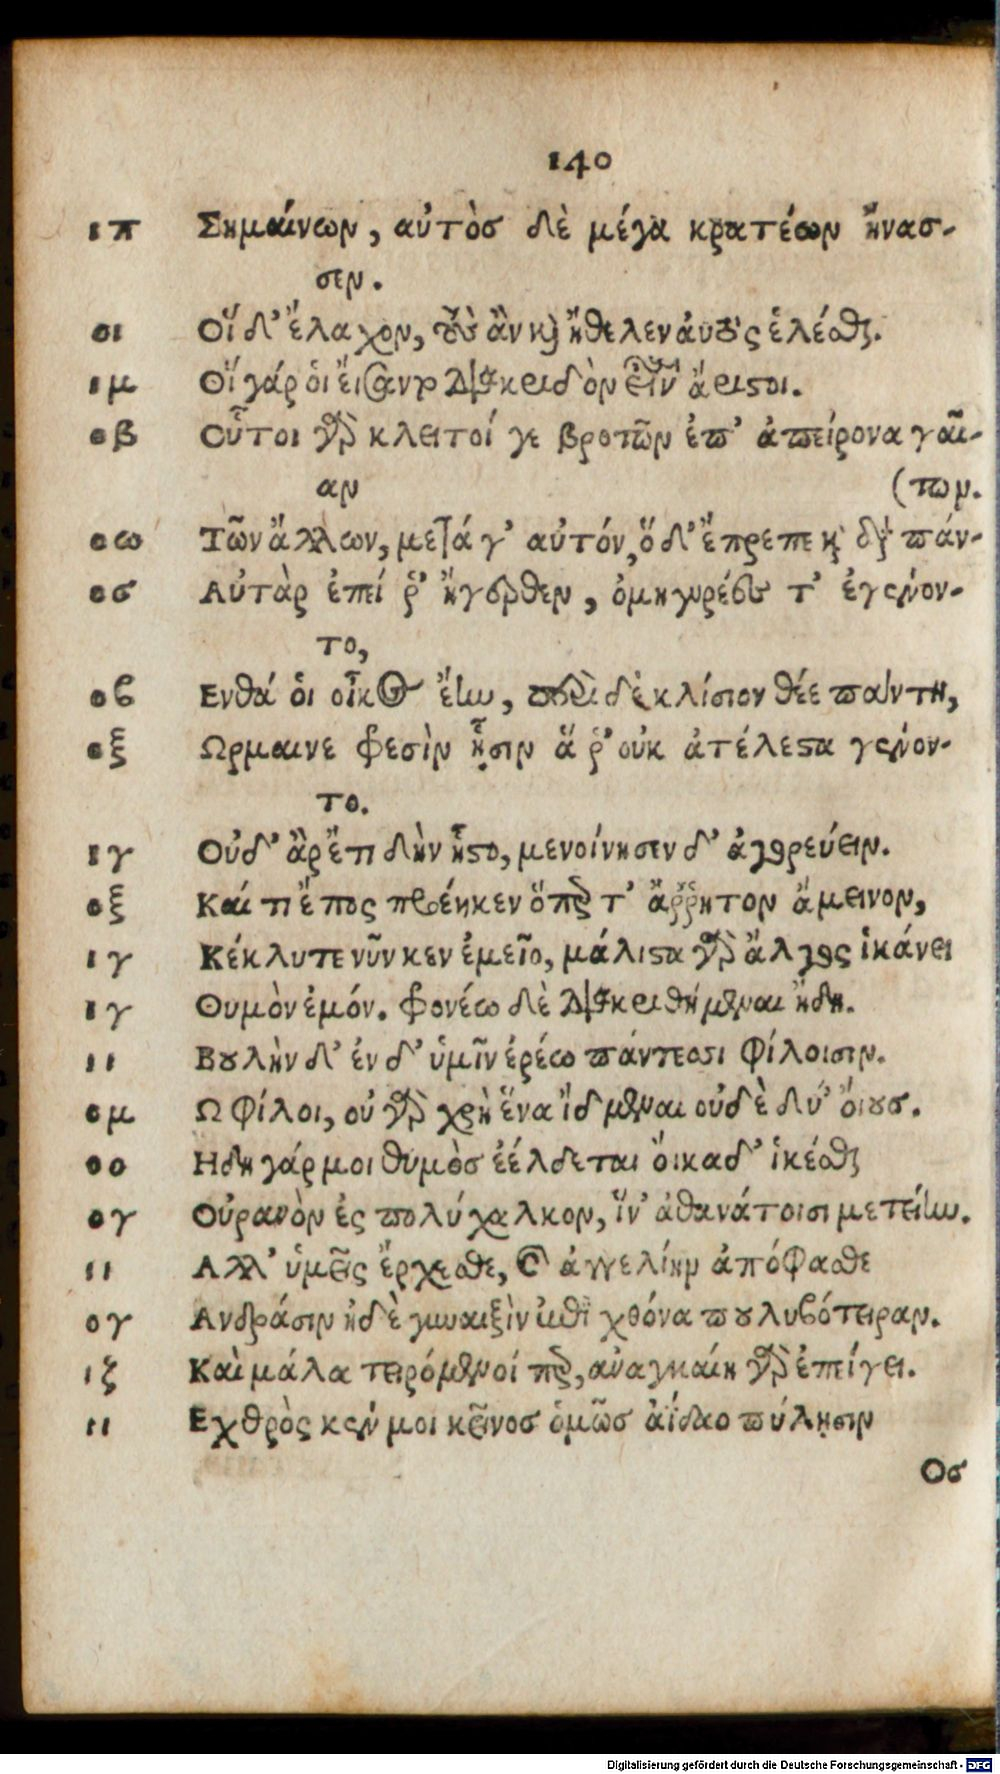 140
ιπ Σημαίνων, αὐτὸσ δὲ μέγα κρατέων ἤνασ-
σεν.
οι Οἵ δ' ἔλαχον, οὓς ἂν καὶ ἤθελεν αὐτοὺς ἑλέσθαι.
ιμ Οἵ γάρ οἱ ἔισαντο διακριδὸν εἶναι ἄριστοι.
οβ Οὗτοι γὰρ κλειτοί γε βροτῶν ἐπ' ἀπείρονα γαῖ-
αν (των.
οω Τῶν ἄλλων, μετά γ' αὐτόν, ὅ δ' ἔπρεπε καὶ διὰ πάν-
οσ Αὐτὰρ ἐπεί ῥ' ἤγερθεν, ὁμηγυρέες τ' ἐγένον-
το,
οβ Ενθά ὁι οἶκος ἔην, περὶ δὲ κλίσιον θέε πάντη,
οξ Ωρμαινε φρεσὶν ᾗσιν ἅ ῥ' οὐκ ἀτέλεστα γένον-
το.
ιγ Οὐδ' ἂρ ἔτι δὴν ἧστο, μενοίνησεν δ' ἀγορεύειν.
οξ Καί τι ἔπος προέηκεν ὅπερ τ' ἄῤῥητον ἄμεινον,
ιγ Κέκλυτε νῦν κεν ἐμεῖο, μάλιστα γὰρ ἄλγος ἱκάνει
ιγ Θυμὸν ἐμόν. φρονέω δὲ διακριθήμεναι ἤδη.
ιι Βουλὴν δ' ἐν δ' ὑμῖν ἐρέω πάντεσσι φίλοισιν.
ομ Ω φίλοι, οὐ γὰρ χρὴ ἕνα ἴδμεναι οὐδὲ δύ' ὄιουσ.
οο Ηδη γάρ μοι θυμὸσ ἐέλδεται ὄικαδ' ἱκέσθαι
ογ Οὐρανὸν ἐς πολύχαλκον, ἵν' ἀθανάτοισι μετείην.
ιι Αλλ' ὑμεῖς ἔρχεσθε, καὶ ἀγγελίην ἀπόφασθε
ογ Ανδράσιν ἠδὲ γυναιξὶν ἐπὶ χθόνα πουλυβότειραν.
ιζ Καὶ μάλα τειρόμενοί περ, αὐαγκαίη γὰρ ἐπείγει.
ιι Εχθρὸς κέν μοι κεῖνοσ ὁμῶσ ἀΐδαο πύλῃσιν
Οσ
Digitalisierung gefördert durch die Deutsche Forschungsgemeinschaft - DFG